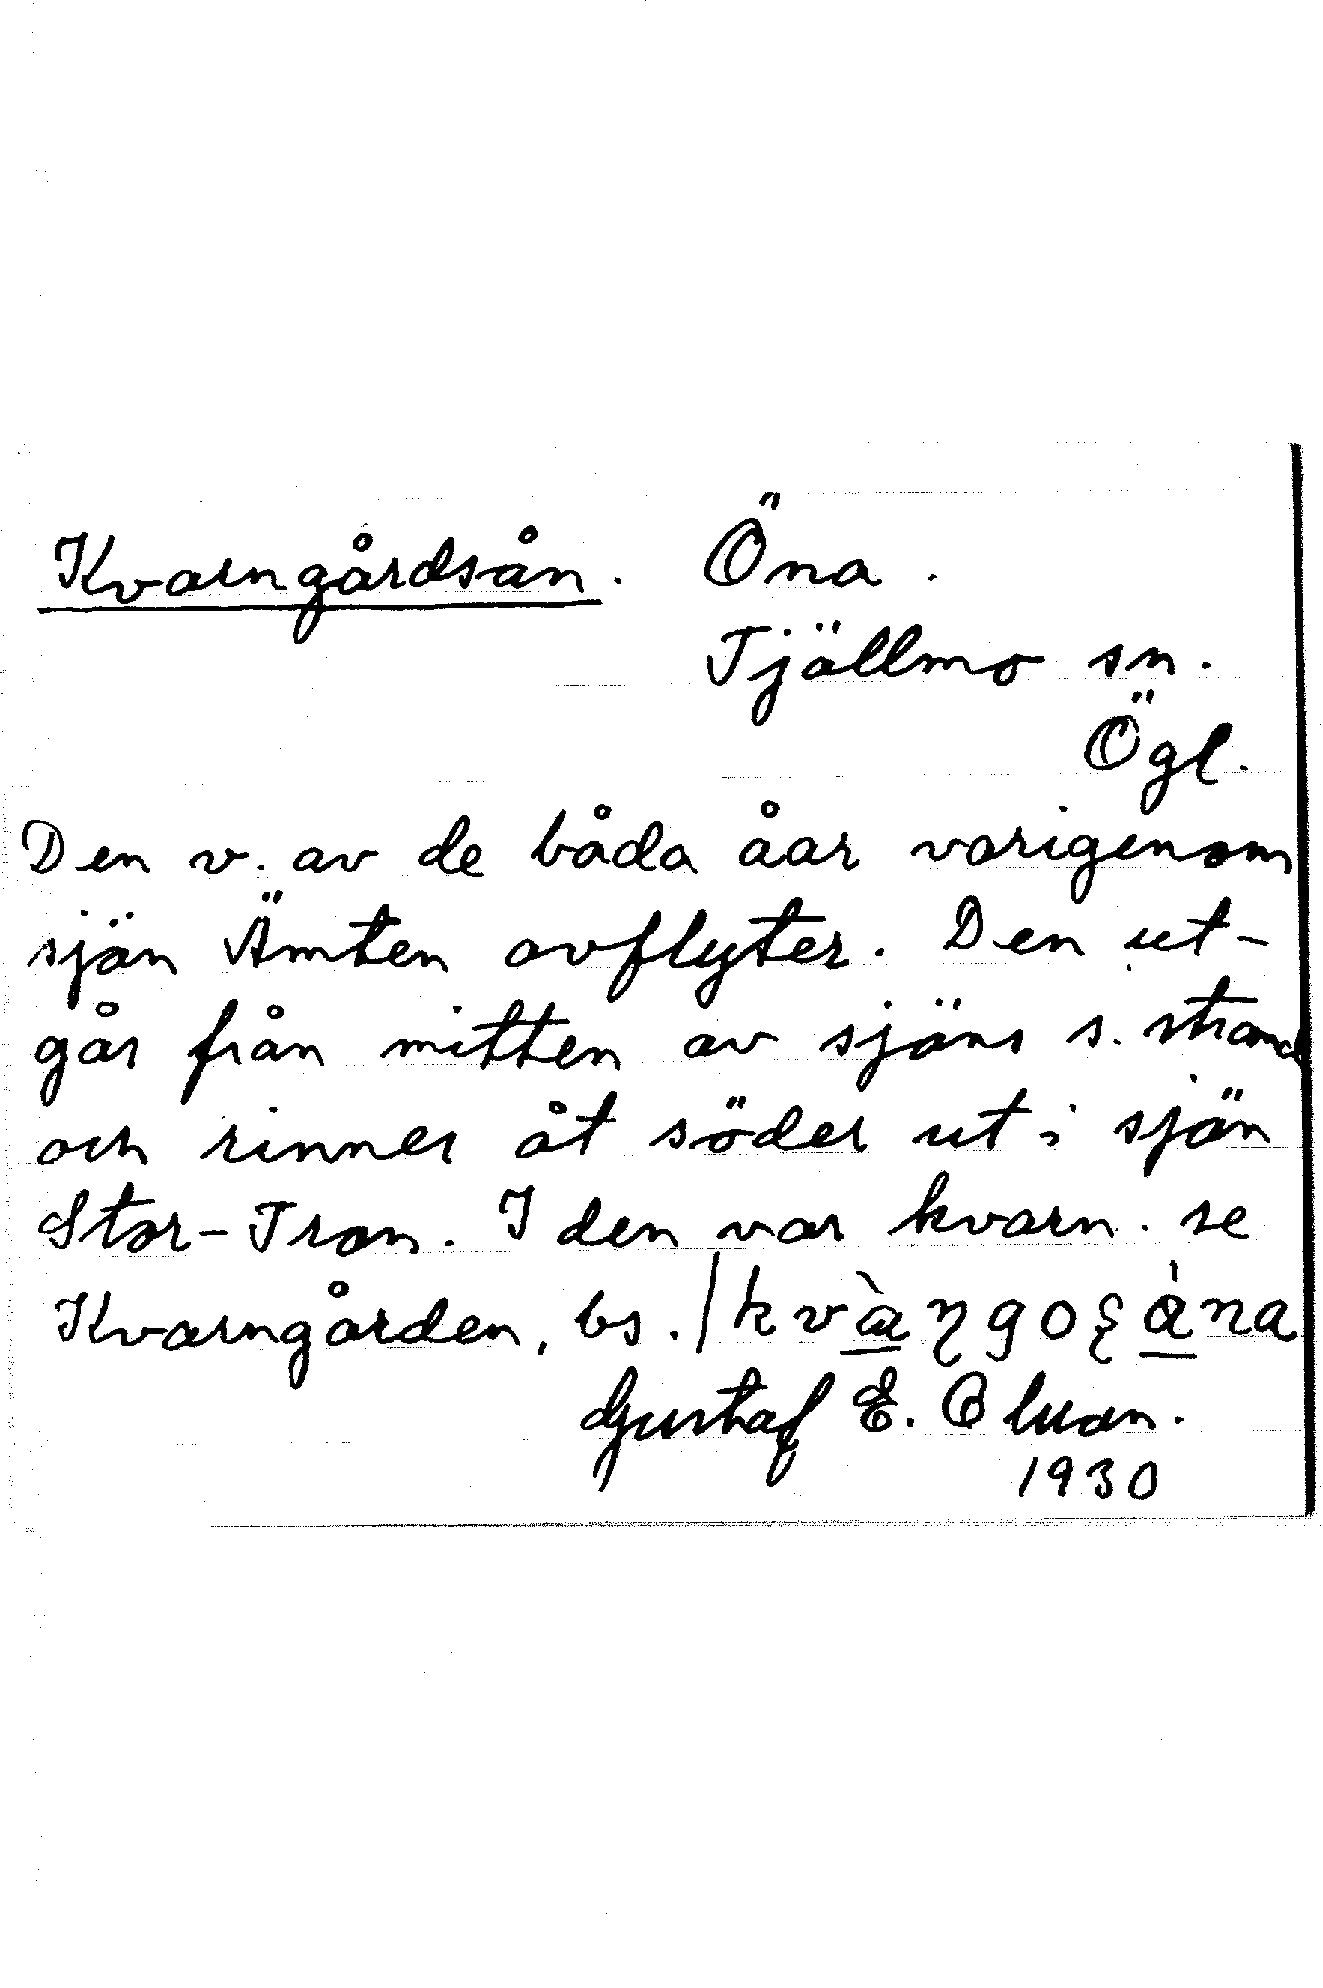 Kvarngårdsån. Öna.
Tjällmo sn.
Ögl.
Den v. av de båda åar varigenom
sjön Ämten avflyter. Den ut-
går från mitten av sjöns s. strand
och rinner åt söder ut i sjön
Stor-Tron. I den var kvarn. se
Kvarngården, bs.
Gustaf E.
1930